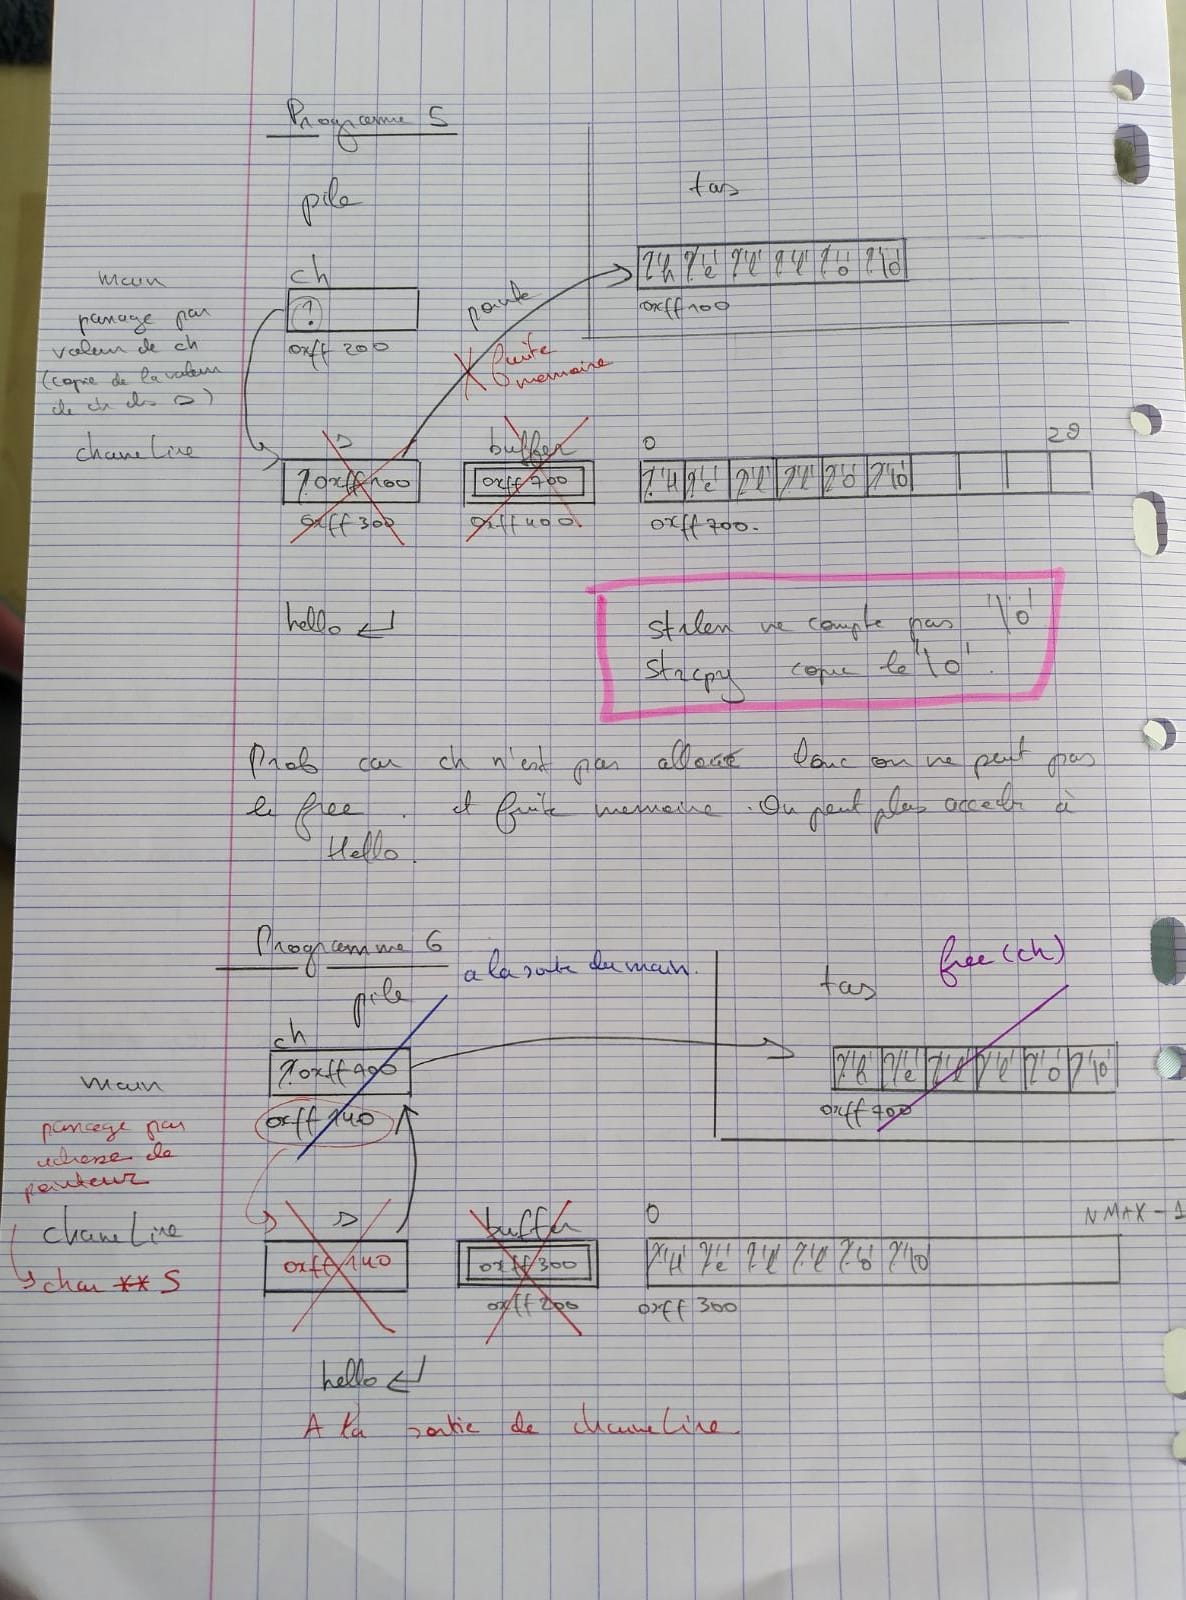 Programme 5
pile
tas
main
ch
?
0xff 200
passage par
valeur de ch
(copie de la valeur
de ch ds s)
pointe
X fuite
memoire
?'h' ?'e' ?'l' ?'l' ?'o' ?'\0'
0xff 100
chaineLire
s
? 0xff 100
0xff 300
buffer
0xff 700
0xff 400
0
29
?'H' ?'e' ?'l' ?'l' ?'o' ?'\0'
0xff 700.
hello ↵
strlen ne compte pas '\0'
strcpy copie le '\0'.
Prob car ch n'est pas alloué donc on ne peut pas
le free. et fuite memoire. On peut plus acceder à
Hello.
Programme 6
pile
a la sortie du main.
tas
free(ch)
main
ch
?
0xff 140
passage par
adresse de
pointeur
?'h' ?'e' ?'l' ?'l' ?'o' ?'\0'
chaineLire
↳ char ** S
s
0xff 140
buffer
0xff 300
0xff 200
0
NMAX-1
?'H' ?'e' ?'l' ?'l' ?'o' ?'\0'
0xff 300
hello ↵
A la sortie de chaineLire.